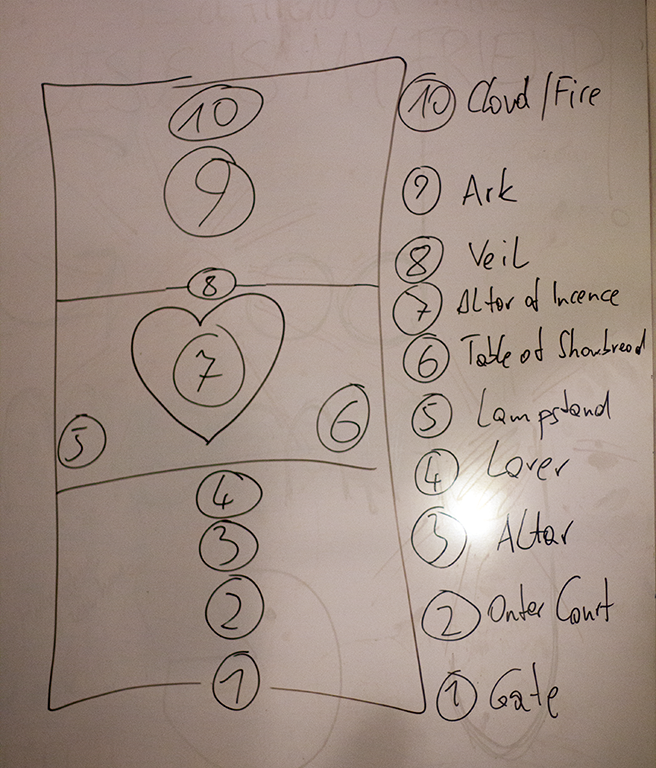 10 10 Cloud/Fire
9 9 Ark
8 8 Veil
7 7 Altar of Incence
6 6 Table of Showbread
5 5 Lampstand
4 4 Laver
3 3 Altar
2 2 Outer Court
1 1 Gate